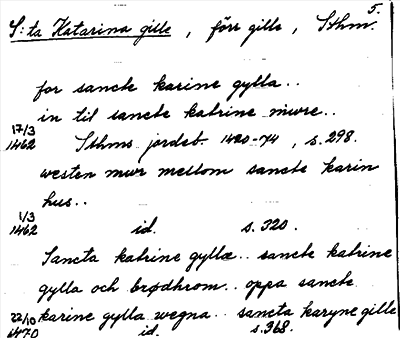 5.
S:ta Katarina gille, förr gille, Sthm.
for sancte karine gylla..
in til sancte katrine mwre..
17/3
1462 Sthms jordeb. 1420-74, s. 298.
westen mwr mellom sancte karin
hus..
1/3
1462 id. s. 320.
Sancta katrine gyllæ.. sancte katrine
gylla och brødhrom.. oppa sancte
22/10 karine gylla wegna.. sancta karyne gille
1470 id. s. 368.